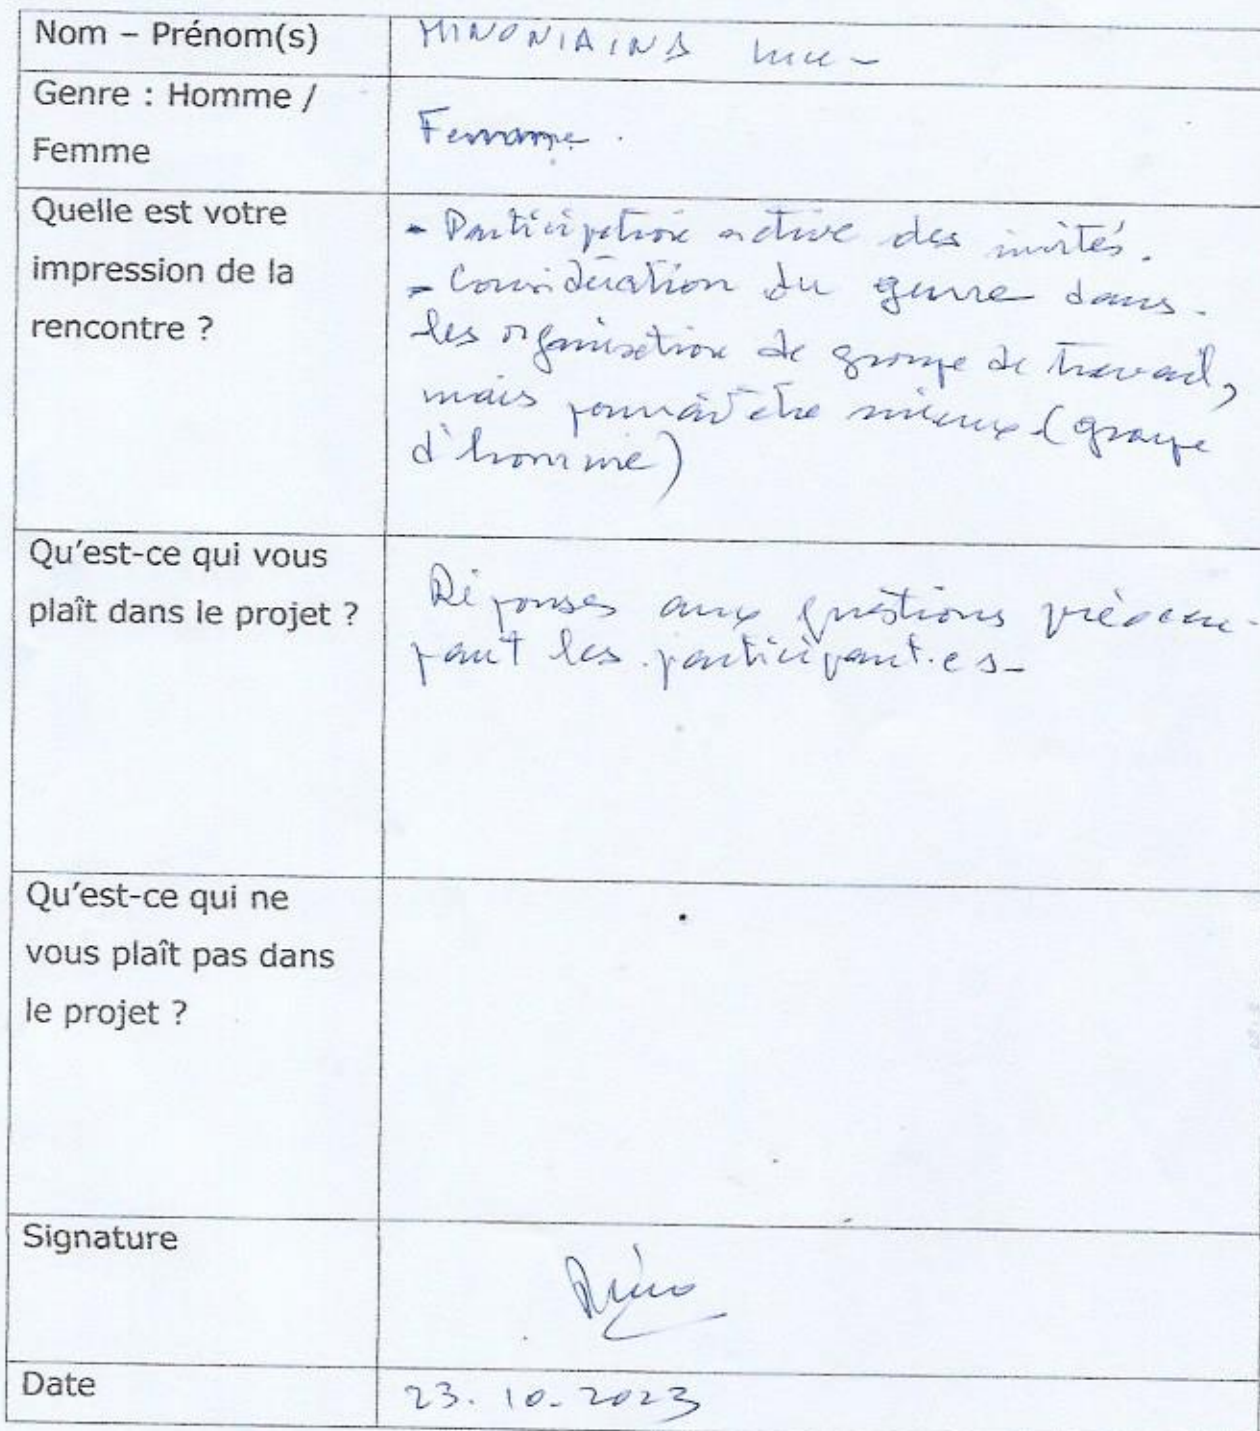 Nom – Prénom(s)
MINONIAINA
Genre : Homme /
Femme
Femme.
Quelle est votre
impression de la
rencontre ?
- Participation active des invités.
- Considération du genre dans
les organisation de groupe de travail,
mais pourrait être mieux (groupe
d'homme)
Qu'est-ce qui vous
plaît dans le projet ?
Réponses aux questions préoccu-
pant les participant.es-
Qu'est-ce qui ne
vous plaît pas dans
le projet ?
Signature
Date
23.10.2023